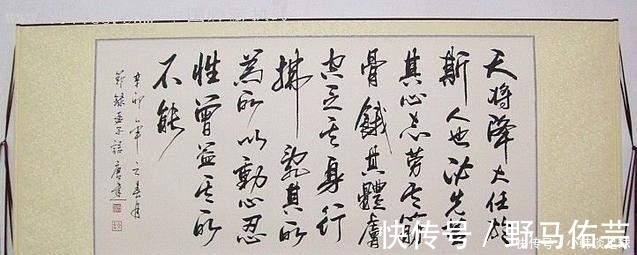 天将降大任於
斯人也必先苦
其心志劳其筋
骨餓其體膚
空乏其身行
拂亂其所
為所以動心忍
性曾益其所
不能
辛卯年之春月
節錄孟子語
快传号 / 野马佑芸